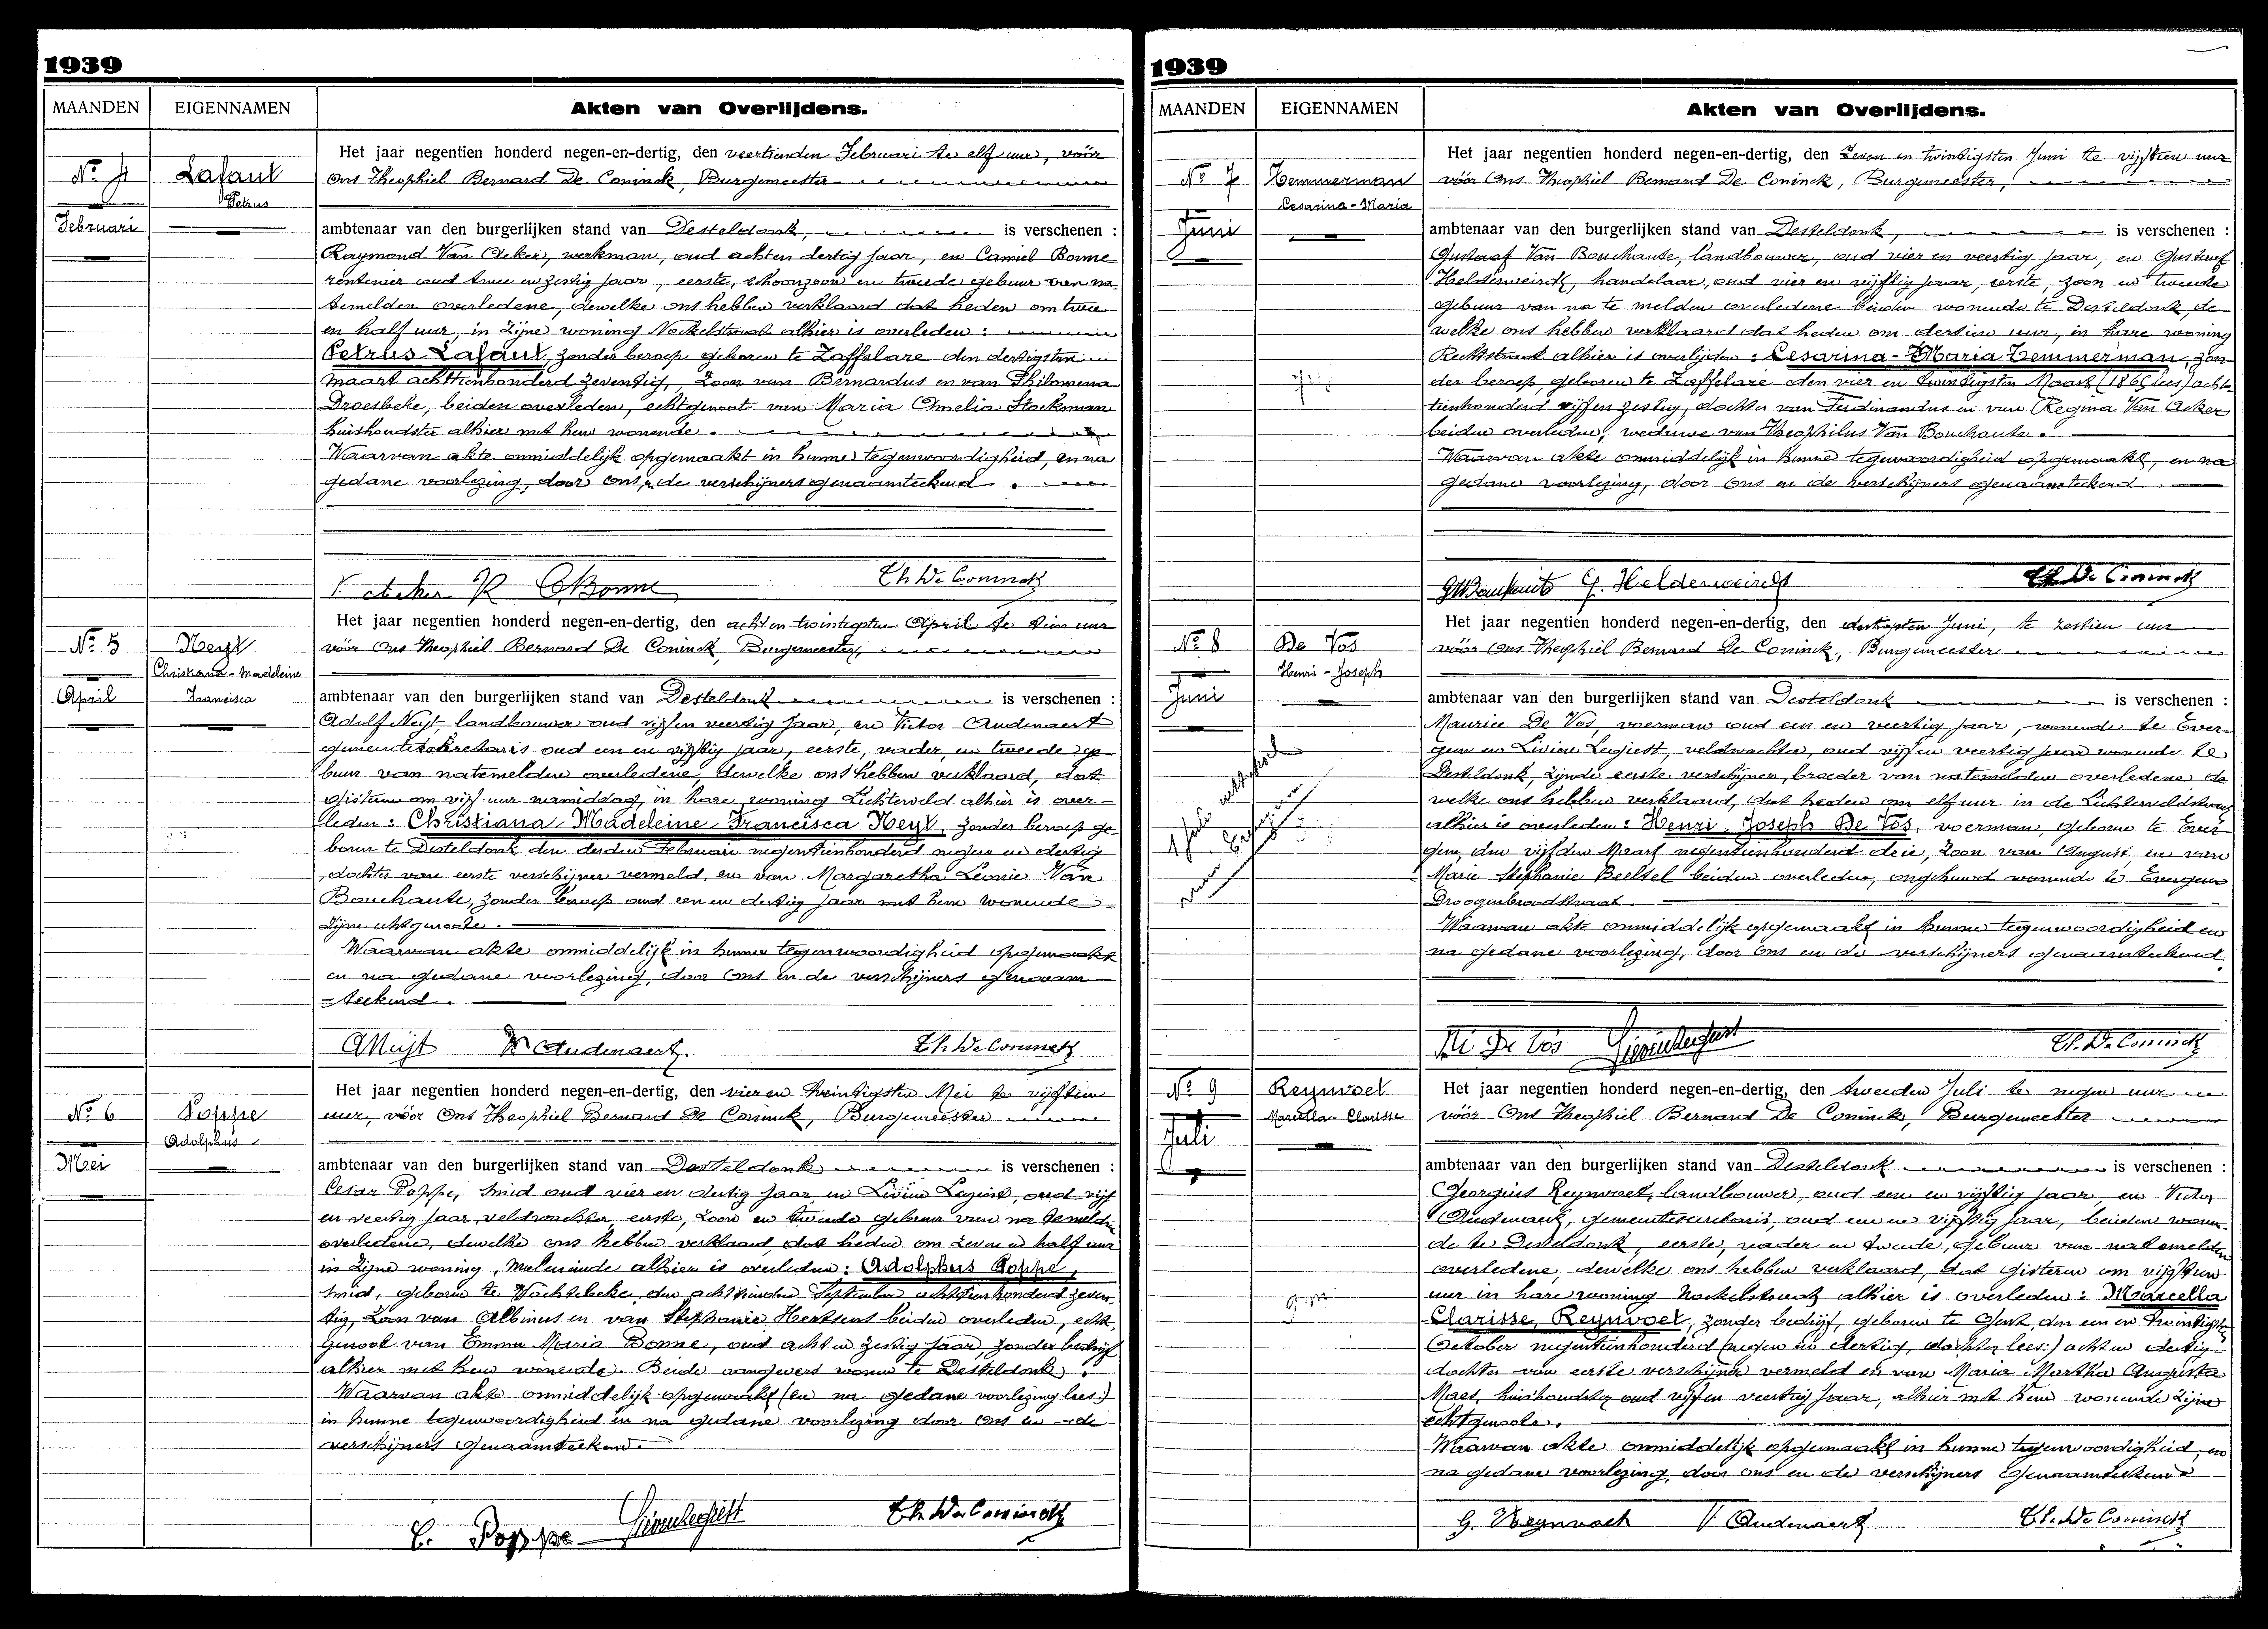 1939
MAANDEN
EIGENNAMEN
Akten van Overlijdens.
Nr 4
Lafaut
Petrus
Februari
Het jaar negentien honderd negen-en-dertig, den veertienden Februari te elf uur, vóór
Ons Theophiel Bernard De Coninck, Burgemeester
ambtenaar van den burgerlijken stand van Desteldonk, is verschenen :
Raymond Van Acker, werkman, oud achten dertig jaar, en Camiel Bonne
rentenier oud twee en zestig jaar, eerste, schoonzoon en tweede gebuur van na-
temelden overledene, dewelke ons hebben verklaard dat heden om twee
en half uur, in zijne woning Nockelstraat alhier is overleden :
Petrus Lafaut, zonder beroep geboren te Zaffelare den dertigsten
maart achttienhonderd zeventig, zoon van Bernardus en van Philomena
Droesbeke, beiden overleden, echtgenoot van Maria Amelia Stockman
huishoudster alhier met hem wonende.
Waarvan akte onmiddelijk opgemaakt in hunne tegenwoordigheid, en na
gedane voorlezing, door ons, en de verschijners genaamteekend.
V Acker R CBonne Th De Coninck
Nr 5
Neyt
Christiana-Madeleine
Francisca
April
Het jaar negentien honderd negen-en-dertig, den acht en twintigsten April te tien uur
vóór Ons Theophiel Bernard De Coninck, Burgemeester,
ambtenaar van den burgerlijken stand van Desteldonk is verschenen :
Adolf Neyt, landbouwer oud vijf en veertig jaar, en Victor Audenaert
gemeentesekretaris oud een en vijftig jaar, eerste, vader, en tweede ge-
buur van natemelden overledene, dewelke ons hebben verklaard, dat
gisteren om vijf uur namiddag, in hare woning Lichterveld alhier is over-
leden : Christiana Madeleine Francisca Neyt, zonder beroep ge-
boren te Desteldonk den derden Februari negentienhonderd negen en dertig
, dochter van eerste verschijner vermeld, en van Margaretha Leonie Van
Bouchaute, zonder beroep oud een en dertig jaar met hem wonende
zijne echtgenoote.
Waarvan akte onmiddelijk in hunne tegenwoordigheid opgemaakt
en na gedane voorlezing, door Ons en de verschijners genaam-
teekend.
A Neyt V. Audenaert. Th. De Coninck
Nr 6
Poppe
Adolphus
Mei
Het jaar negentien honderd negen-en-dertig, den vier en twintigsten Mei te vijftien
uur, vóór Ons Theophiel Bernard De Coninck, Burgemeester
ambtenaar van den burgerlijken stand van Desteldonk is verschenen :
Cesar Poppe, smid oud vier en dertig jaar, en Livien Legiest, oud vijf
en veertig jaar, veldwachter, eerste, zoon en tweede gebuur van na temelden
overledene, dewelke ons hebben verklaard, dat heden om zeven en half uur
in zijne woning, Moleneinde alhier is overleden : Adolphus Poppe,
smid, geboren te Wachtebeke, den achttienden September achttienhonderd zeven-
tig, zoon van Albinus en van Stephanie Hertsens beiden overleden, echt-
genoot van Emma Maria Bonne, oud acht en zestig jaar, zonder bedrijf
alhier met hem wonende. Beide aangevers wonen te Desteldonk.
Waarvan akte onmiddelijk opgemaakt (en na gedane voorlezing lees:)
in hunne tegenwoordigheid en na gedane voorlezing door Ons en de
verschijners genaamteekend.
C. Poppe Livien Legiest Th. De Coninck
1939
MAANDEN
EIGENNAMEN
Akten van Overlijdens.
Nr 7
Temmerman
Cesarina-Maria
Juni
Het jaar negentien honderd negen-en-dertig, den Zeven en twintigsten Juni te vijftien uur
vóór Ons Theophiel Bernard De Coninck, Burgemeester,
ambtenaar van den burgerlijken stand van Desteldonk, is verschenen :
Gustaaf Van Bouchaute, landbouwer, oud vier en veertig jaar, en Gustaaf
Helderweirdt, handelaar, oud vier en vijftig jaar, eerste, zoon en tweede
gebuur van na te melden overledene beiden wonende te Desteldonk, de-
welke ons hebben verklaard dat heden om dertien uur, in hare woning
Rechtstraat alhier is overlijden : Cesarina-Maria Temmerman, zon-
der beroep, geboren te Zaffelare den vier en twintigsten Maart (1865 lees) acht-
tienhonderd vijf en zestig, dochter van Ferdinandus en van Regina Van Acker
beiden overleden, weduwe van Theophilus Van Bouchaute.
Waarvan akte onmiddelijk in hunne tegenwoordigheid opgemaakt, en na
gedane voorlezing, door Ons en de verschijners genaamteekend.
G V Bouchaute G. Helderweirdt Th. De Coninck
Nr 8
De Vos
Henri-Joseph
Juni
Het jaar negentien honderd negen-en-dertig, den dertigsten Juni, te zestien uur
vóór Ons Theophiel Bernard De Coninck, Burgemeester
ambtenaar van den burgerlijken stand van Desteldonk is verschenen :
Maurice De Vos, voerman oud een en veertig jaar, wonende te Ever-
gem en Livien Legiest, veldwachter, oud vijf en veertig jaar wonende te
Desteldonk, zijnde eerste verschijner, broeder van natemelden overledene de
welke ons hebben verklaard, dat heden om elf uur in de Lichterveldstraat
alhier is overleden : Henri Joseph De Vos, voerman, geboren te Ever-
gem, den vijfden Maart negentienhonderd drie, zoon van August en van
Marie Stephanie Beeltel beiden overleden, ongehuwd wonende te Evergem
Droogenbroodstraat.
Waarvan akte onmiddelijk opgemaakt in hunne tegenwoordigheid en
na gedane voorlezing, door Ons en de verschijners genaamteekend.
De Vos Livien Legiest Th. De Coninck
Nr 9
Reynvoet
Marcella Clarisse
Juli
Het jaar negentien honderd negen-en-dertig, den tweeden Juli te negen uur
vóór Ons Theophiel Bernard De Coninck, Burgemeester
ambtenaar van den burgerlijken stand van Desteldonk is verschenen :
Georgius Reynvoet, landbouwer, oud een en vijftig jaar, en Victor
Audenaert, gemeentesecretaris, oud een en vijftig jaar, beiden wonen-
de te Desteldonk, eerste, vader en tweede, gebuur van natemelden
overledene, dewelke ons hebben verklaard, dat gisteren om vijftien
uur in hare woning Nockelstraat alhier is overleden : Marcella
Clarisse Reynvoet, zonder bedrijf, geboren te Gent, den een en twintigsten
October negentienhonderd (negen en dertig, dochter lees:) acht en dertig
dochter van eerste verschijner vermeld en van Maria Martha Augusta
Maes, huishoudster oud vijf en veertig jaar, alhier met hem wonende zijne
echtgenoote.
Waarvan akte onmiddelijk opgemaakt in hunne tegenwoordigheid, en
na gedane voorlezing, door ons en de verschijners genaamteekend
G. Reynvoet V Audenaert Th. De Coninck